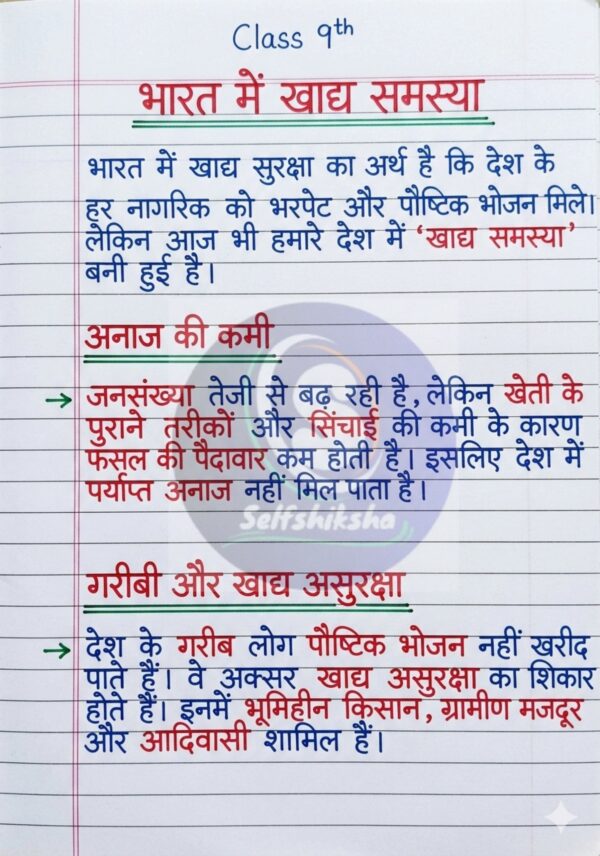 Class 9th
भारत में खाद्य समस्या
भारत में खाद्य सुरक्षा का अर्थ है कि देश के
हर नागरिक को भरपेट और पौष्टिक भोजन मिले।
लेकिन आज भी हमारे देश में 'खाद्य समस्या'
बनी हुई है।
अनाज की कमी
→ जनसंख्या तेजी से बढ़ रही है, लेकिन खेती के
पुराने तरीकों और सिंचाई की कमी के कारण
फसल की पैदावार कम होती है। इसलिए देश में
पर्याप्त अनाज नहीं मिल पाता है।
Selfshiksha
गरीबी और खाद्य असुरक्षा
→ देश के गरीब लोग पौष्टिक भोजन नहीं खरीद
पाते हैं। वे अक्सर खाद्य असुरक्षा का शिकार
होते हैं। इनमें भूमिहीन किसान, ग्रामीण मजदूर
और आदिवासी शामिल हैं।